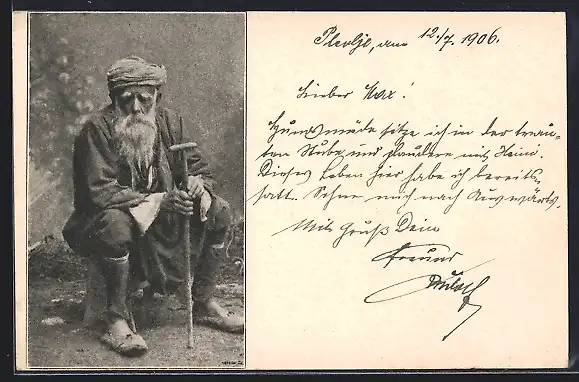 Plevlje, am 12./7. 1906.
Lieber Max!
Hundsmüde sitze ich in der trau-
ten Stube und plaudere mit Heini.
Dieses Leben hier habe ich bereits
satt. Sehne mich nach Auswärts.
Mit Gruß Dein
Freund
Rudolf